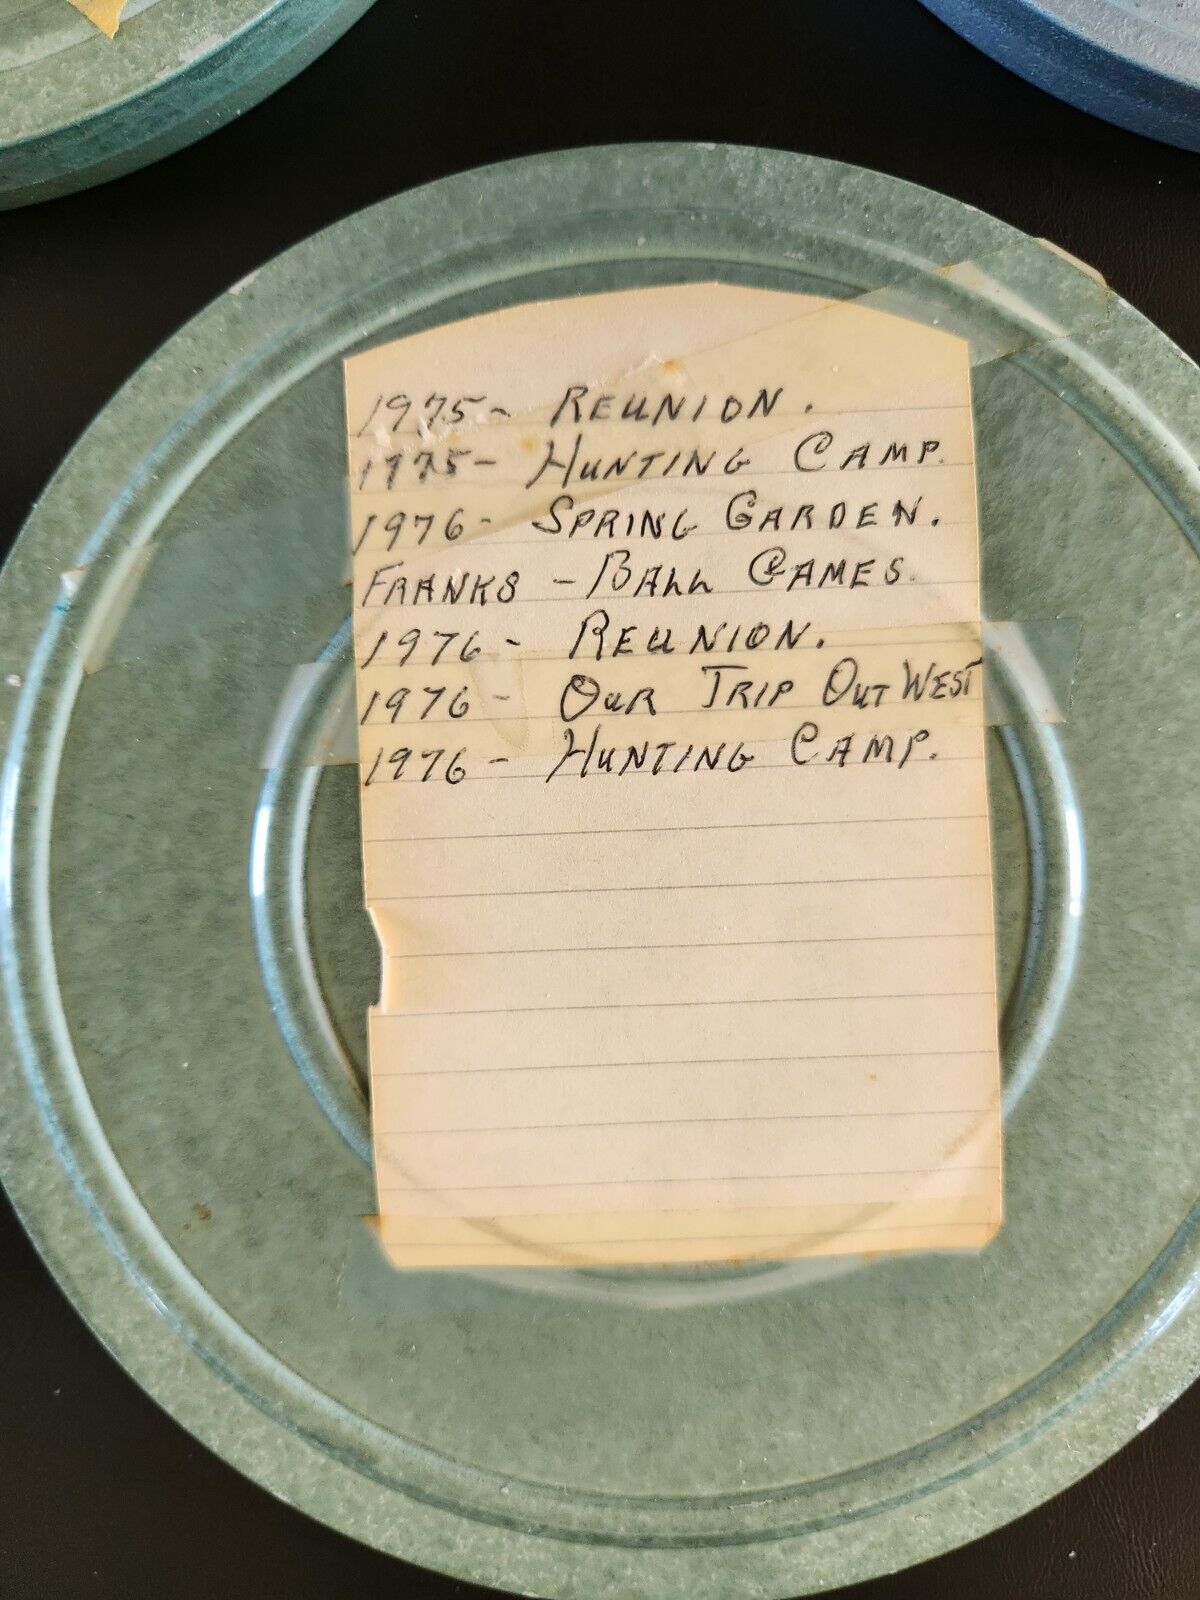 1975- REUNION.
1975- HUNTING CAMP.
1976- SPRING GARDEN.
FRANKS - BALL GAMES.
1976- REUNION.
1976- OUR TRIP OUT WEST
1976- HUNTING CAMP.